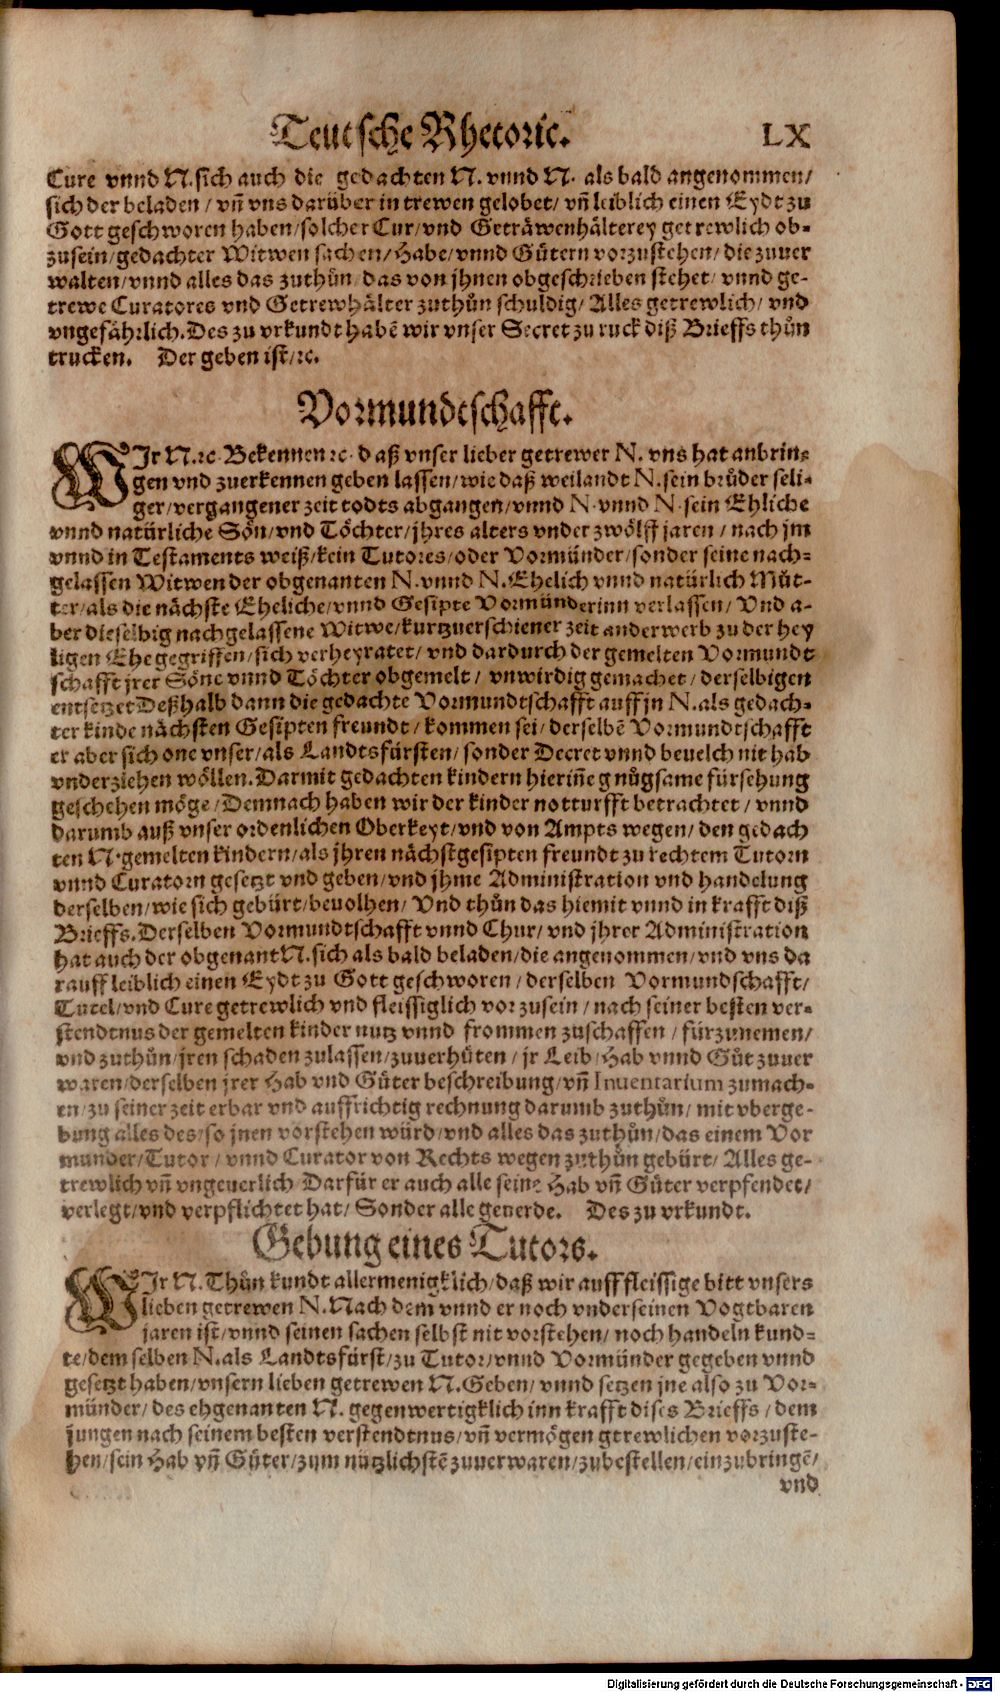 Teutsche Rhetoric. LX
Cure vnnd N. sich auch die gedachten N. vnnd N. als bald angenommen/
sich der beladen / vñ vns darüber in trewen gelobet/ vñ leiblich einen Eydt zu
Gott geschworen haben/solcher Cur/vnd Geträwenhälterey getrewlich ob-
zusein/gedachter Witwen sachen/Habe/vnnd Gütern vorzustehen/die zuuer
walten/vnnd alles das zuthůn/das von jhnen obgeschrieben stehet/ vnnd ge-
trewe Curatores vnd Getrewhälter zuthůn schuldig/ Alles getrewlich/ vnd
vngefährlich. Des zu vrkundt habẽ wir vnser Secret zu ruck diß Brieffs thůn
trucken. Der geben ist/ꝛc.
Vormundtschafft.
WJr N.ꝛc. Bekennen ꝛc. daß vnser lieber getrewer N. vns hat anbrin-
gen vnd zuerkennen geben lassen/wie daß weilandt N. sein brůder seli-
ger/vergangener zeit todts abgangen/vnnd N. vnnd N. sein Ehliche
vnnd natürliche Sön/vnd Töchter/jhres alters vnder zwölff jaren / nach jm
vnnd in Testaments weiß/kein Tutores/oder Vormünder/sonder seine nach-
gelassen Witwen der obgenanten N. vnnd N. Ehelich vnnd natürlich Můt-
ter/als die nächste Eheliche/vnnd Gesipte Vormünderinn verlassen/ Vnd a-
ber dieselbig nachgelassene Witwe/kurtzuerschiener zeit anderwerb zu der hey
ligen Ehe gegriffen/sich verheyratet/ vnd dardurch der gemelten Vormundt
schafft jrer Söne vnnd Töchter obgemelt/ vnwirdig gemachet/ derselbigen
entsetzet Deßhalb dann die gedachte Vormundtschafft auff jn N. als gedach-
ter kinde nächsten Gesipten freundt/ kommen sei/derselbẽ Vormundtschafft
er aber sich one vnser/als Landtsfürsten/sonder Decret vnnd beuelch nit hab
vnderziehen wöllen. Darmit gedachten kindern hieriñe gnůgsame fürsehung
geschehen möge/Demnach haben wir der kinder notturfft betrachtet/ vnnd
darumb auß vnser ordenlichen Oberkeyt/vnd von Ampts wegen/ den gedach
ten N. gemelten kindern/als jhren nächstgesipten freundt zu rechtem Tutorn
vnnd Curatorn gesetzt vnd geben/vnd jhme Administration vnd handelung
derselben/wie sich gebürt/beuolhen/ Vnd thůn das hiemit vnnd in krafft diß
Brieffs. Derselben Vormundtschafft vnnd Chur/ vnd jhrer Administration
hat auch der obgenant N. sich als bald beladen/die angenommen/vnd vns da
rauff leiblich einen Eydt zu Gott geschworen/derselben Vormundschafft/
Tutel/vnd Cure getrewlich vnd fleissiglich vorzusein/nach seiner besten ver-
stendtnus der gemelten kinder nutz vnnd frommen zuschaffen/ fürzunemen/
vnd zuthůn/jren schaden zulassen/zuuerhüten/ jr Leib/Hab vnnd Gůt zuuer
waren/derselben jrer Hab vnd Güter beschreibung/vñ Inuentarium zumach-
en/zu seiner zeit erbar vnd auffrichtig rechnung darumb zuthůn/ mit vberge-
bung alles des/so jnen vorstehen würd/vnd alles das zuthůn/das einem Vor
münder/Tutor/ vnnd Curator von Rechts wegen zuthůn gebürt/ Alles ge-
trewlich vñ vngeuerlich Darfür er auch alle seine Hab vñ Güter verpfendet/
verlegt/vnd verpflichtet hat/ Sonder alle geuerde. Des zu vrkundt.
Gebung eines Tutors.
WJr N. Thůn kundt allermenigklich/daß wir auff fleissige bitt vnsers
lieben getrewen N. Nach dem vnnd er noch vnder seinen Vogtbaren
jaren ist/vnnd seinen sachen selbst nit vorstehen/ noch handeln kund-
te/dem selben N. als Landtsfürst/zu Tutor/vnnd Vormünder gegeben vnnd
gesetzt haben/vnsern lieben getrewen N. Geben/ vnnd setzen jne also zu Vor-
münder/des ehgenanten N. gegenwertigklich inn krafft dises Brieffs/dem
jungen nach seinem besten verstendtnus/vñ vermögen gtrewlichen vorzuste-
hen/sein Hab vñ Güter/zum nützlichstẽ zuuerwaren/zubestellen/einzubringẽ/
vnd
Digitalisierung gefördert durch die Deutsche Forschungsgemeinschaft - DFG